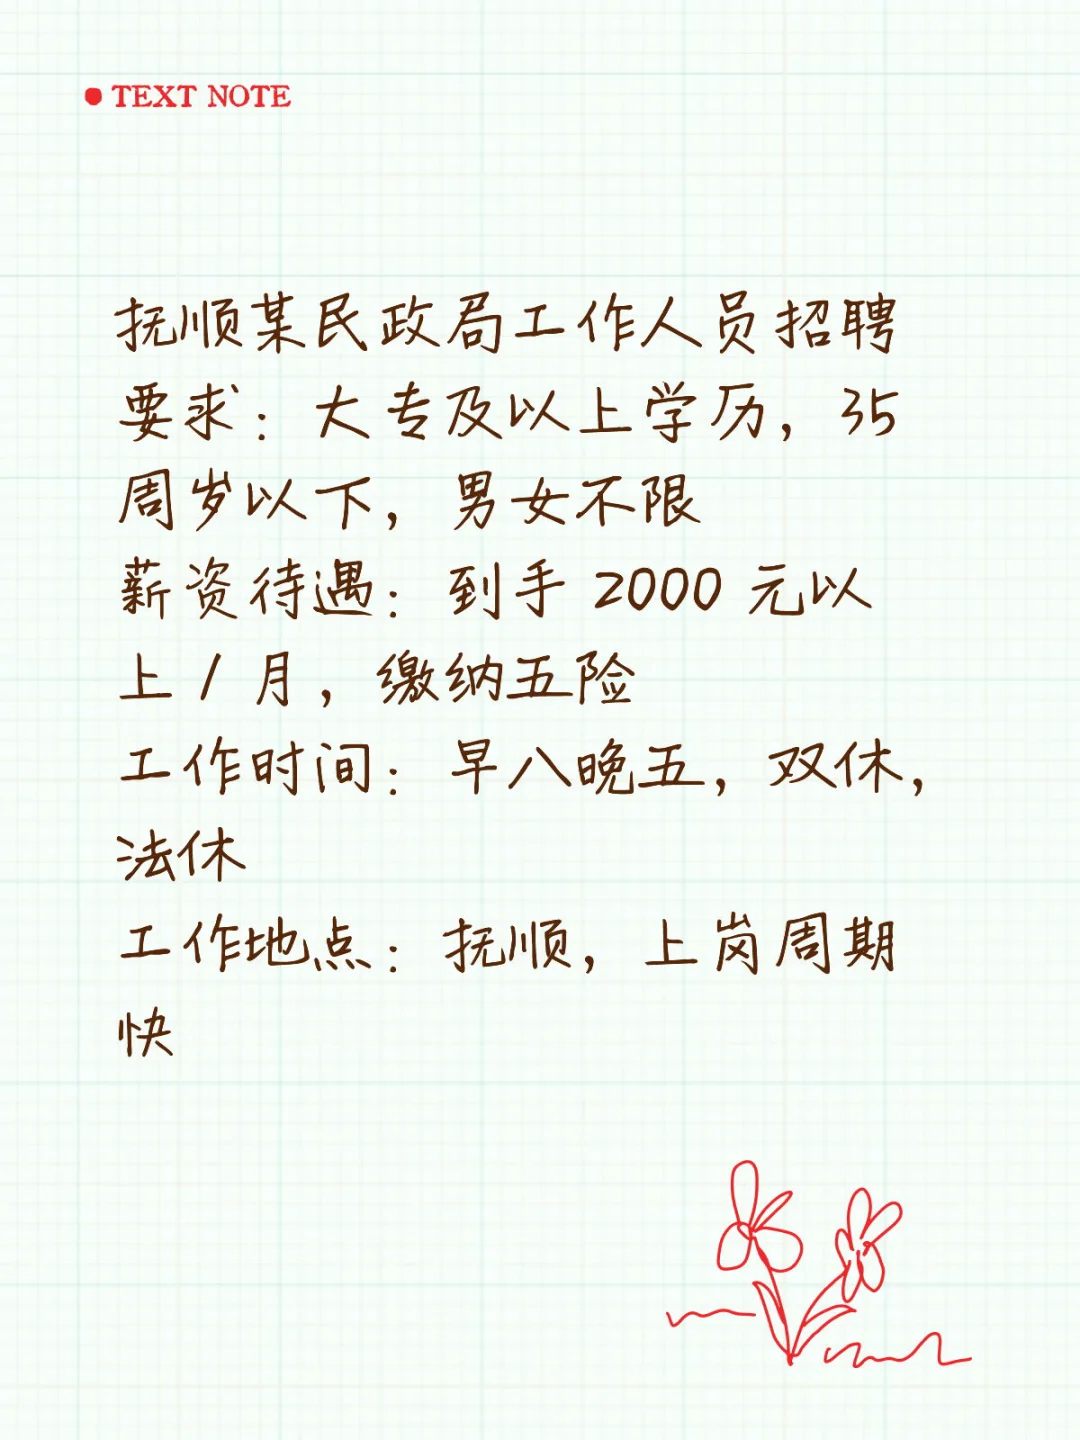 TEXT NOTE
抚顺某民政局工作人员招聘
要求：大专及以上学历，35
周岁以下，男女不限
薪资待遇：到手 2000 元以
上 / 月，缴纳五险
工作时间：早八晚五，双休，
法休
工作地点：抚顺，上岗周期
快